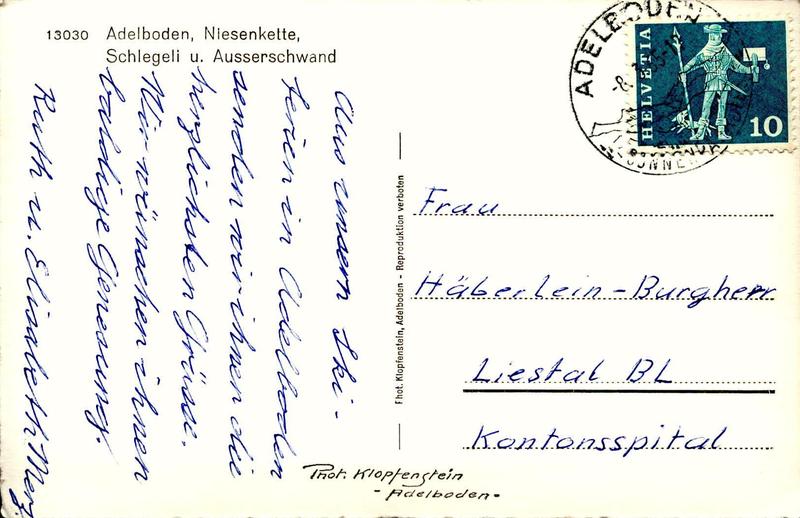 13030 Adelboden, Niesenkette,
Schlegeli u. Ausserschwand
Aus unsern Ski-
ferien in Adelboden
senden wir ihnen die
herzlichsten Grüsse.
Wir wünschen ihnen
baldige Genesung.
Ruth u. Elisabeth Merz.
Phot. Klopfenstein, Adelboden - Reproduktion verboten
ADELBODEN
HELVETIA
10
Frau
Häberlein-Burgherr
Liestal BL
Kantonsspital
Phot. Klopfenstein
- Adelboden -